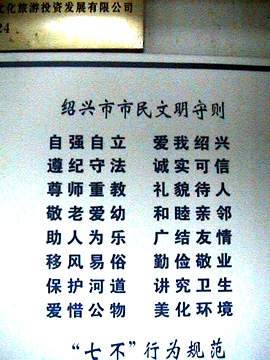 文化旅游投资发展有限公司
24
绍兴市市民文明守则
自强自立 爱我绍兴
遵纪守法 诚实可信
尊师重教 礼貌待人
敬老爱幼 和睦亲邻
助人为乐 广结友情
移风易俗 勤俭敬业
保护河道 讲究卫生
爱惜公物 美化环境
“七不”行为规范